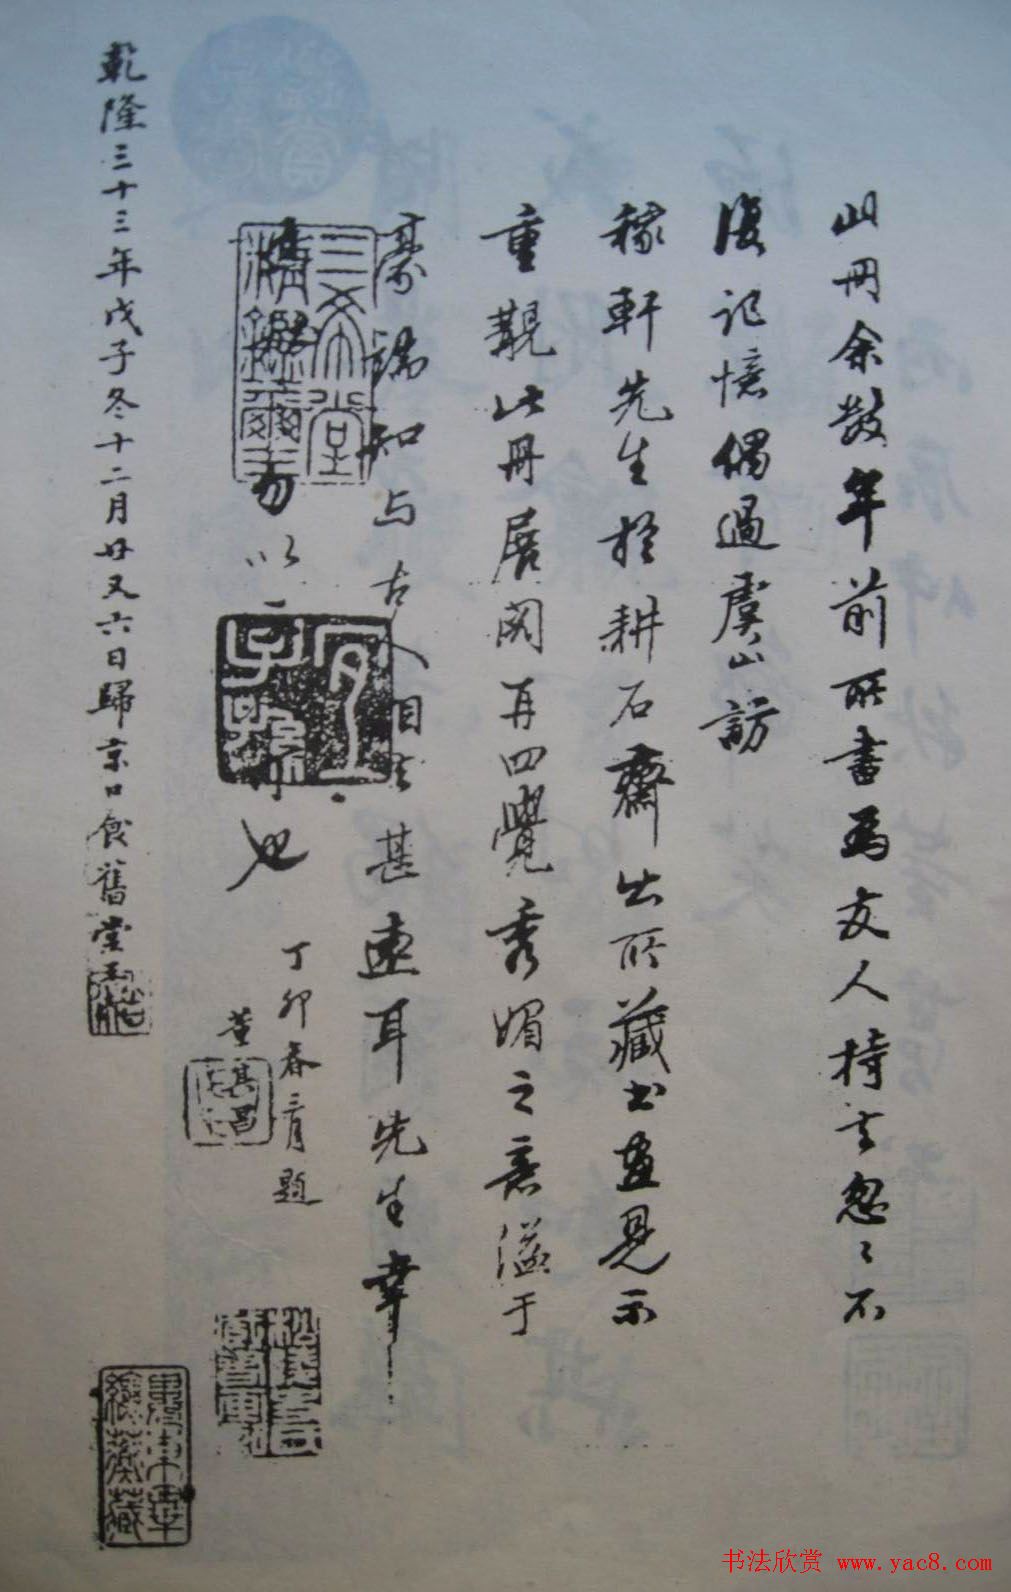 此冊余数年前所書為友人持去忽忽不
復記憶偶過虞山訪
稼軒先生於耕石齋出所藏書画見示
重覩此冊展閱再四覺秀媚之意溢于
豪端知与古人相去甚遠耳先生幸
以
也
丁卯春三月題
董其昌
乾隆三十三年戊子冬十二月廿又六日歸京口食舊堂
三希堂
精鑑璽
宜子孫
书法欣赏 www.yac8.com